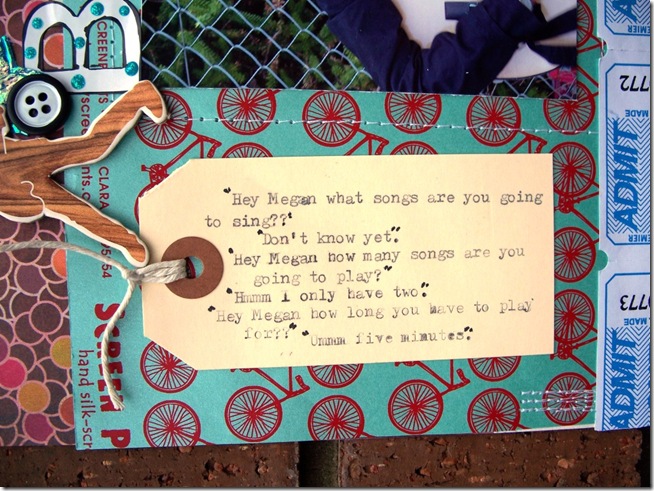 "Hey Megan what songs are you going
to sing??"
"Don't know yet."
"Hey Megan how many songs are you
going to play?"
"Hmmm I only have two."
"Hey Megan how long you have to play
for??" "Ummm five minutes."
B
CLARA
SCREEN P
hand silk-scr
772
MADE
ADMIT
EMIER
0773
MADE
ADMIT